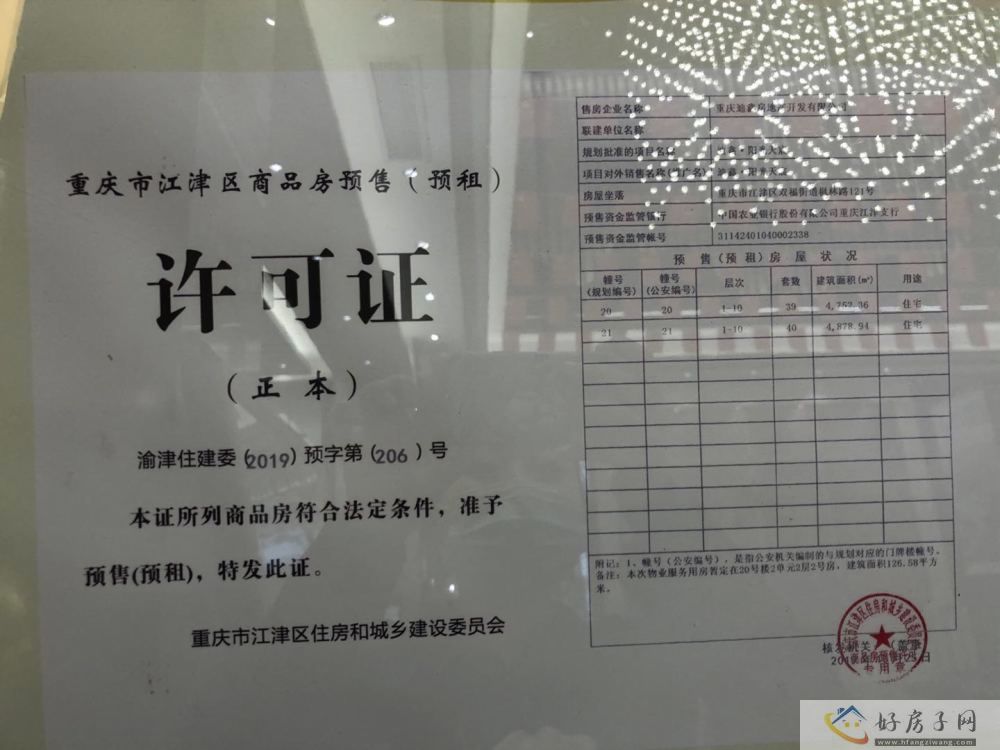 重庆市江津区商品房预售（预租）
许可证
（正本）
渝津住建委（2019）预字第（206）号
本证所列商品房符合法定条件，准予
预售(预租)，特发此证。
重庆市江津区住房和城乡建设委员会
售房企业名称 重庆迪鑫房地产开发有限公司
联建单位名称
规划批准的项目名称 迪鑫·阳光大道
项目对外销售名称(推广名) 迪鑫·阳光大道
房屋坐落 重庆市江津区双福街道枫林路121号
预售资金监管银行 中国农业银行股份有限公司重庆江津支行
预售资金监管帐号 31142401040002338
预售（预租）房屋状况
幢号（规划编号） 幢号（公安编号） 层次 套数 建筑面积(㎡) 用途
20 20 1-10 39 4,752.36 住宅
21 21 1-10 40 4,878.94 住宅
附记：1、幢号（公安编号），是指公安机关编制的与规划对应的门牌楼幢号。
备注：本次物业服务用房暂定在20号楼2单元2层2号房，建筑面积126.58平方
米。
核发机关（盖章
专用章
好房子网
www.hfangziwang.com